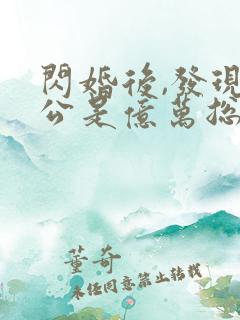 閃婚後,發現
公是億萬總
董奇
未任同意禁止转载